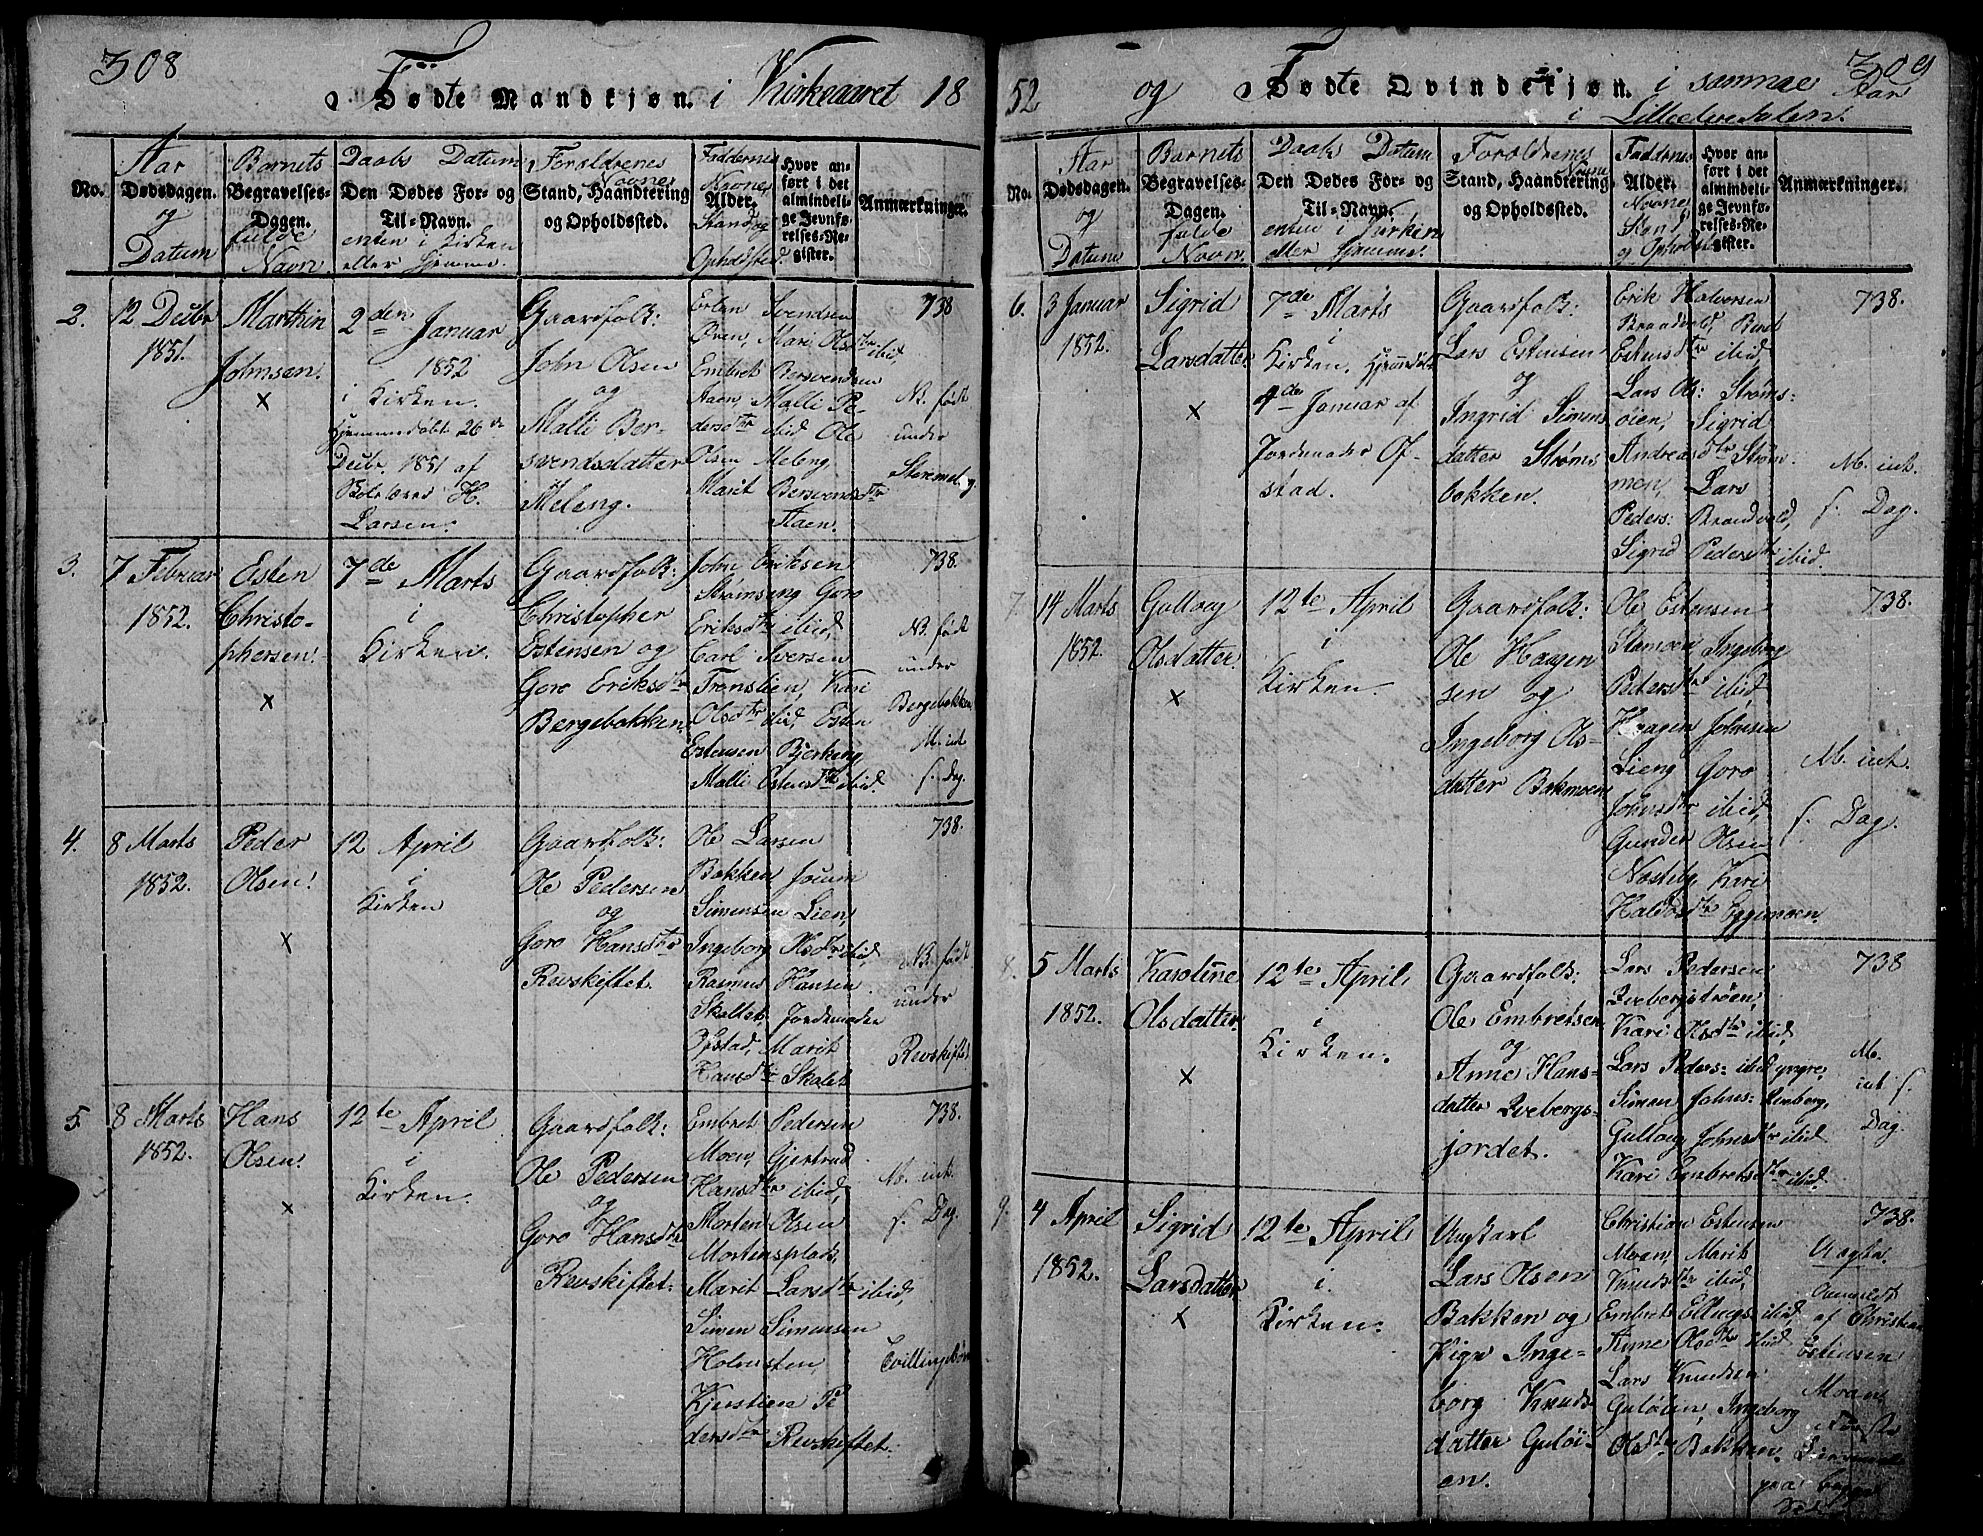 308
Fødte Mandkjøn. i Kirkeaaret 18
No.
Aar
Dødsdagen.
og
Datum
Barnets
Begravelses-
Dagen.
fulde
Navn
Daabs Datum
Den Dødes For- og
Til-Navn.
enten i Kirken
eller hjemme.
Forældrenes
Navne
Stand, Haandtering
og Opholdssted.
Faddernes
Navne
Alder.
Stand og
Opholdsted.
Hvor an-
ført i det
almindeli-
ge Jevnfø-
relses-Re-
gister.
Anmærkninger.
2.
12 Decbr
1851.
Marthin
Johnsen.
×
2den Januar
1852
i Kirken.
Hjemmedøbt 26de
Decbr. 1851 af
H.
Larsen.
Gaardfolk:
John Olsen
og
Malli Ber-
svendsdatter
Meleng.
Esten Svendsen
Øren, Mari Olsdtr ibid
Embret Bersvendsen
Aaen, Malli Pe-
dersdtr ibid Ole
Olsen Meleng,
Marit Bersvendsdtr
Aaen.
738
NB. født
under
Storemeleng.
3.
7 Februar
1852.
Esten
Christo-
phersen.
×
7de Marts
i
Kirken.
Gaardfolk:
Christopher
Estensen og
Goro Eriksdtr
Bergebakken.
John Eriksen
Strømseng Goro
Eriksdtr ibid,
Carl Iversen
Tronslien, Kari
Olsdtr ibid, Esten
Estensen Bjerkeng
Malli Estensdtr ibid.
738.
NB. født
under
Bergebakken
M. int.
f. Dag.
4.
8 Marts
1852.
Peder
Olsen.
×
12 April
i
Kirken
Gaardfolk:
Ole Pedersen
og
Goro Hansdtr
Revskiftet.
Ole Larsen
Bakken Joeum
Simensen Lien,
Ingeborg Olsdtr ibid,
Rasmus Hansen
Skallet, Jordemoder
Ofstad, Marit
Hansdtr Skalet
738.
NB. født
under
Revskiftet
5.
8 Marts
1852.
Hans
Olsen.
×
12te April
i
Kirken.
Gaardfolk:
Ole Pedersen
og
Goro Hansdtr
Revskiftet.
Embret Pedersen
Moen, Gjertrud
Hansdtr ibid,
Morten Olsen
Mortensplads,
Marit Larsdtr ibid,
Simen Simensen
Holmsten,
Kjerstien Pe
dersdtr Revskiftet.
738.
M. int.
f. Dag.
Tvillingebørn
309
52 og Fødte Qvindekjøn. i samme Aar
i Lilleelvedalen.
No.
Aar
Dødsdagen.
og
Datum
Barnets
Begravelses-
Dagen.
fulde
Navn.
Daabs Datum
Den Dødes For- og
Til-Navn.
enten i Kirken
eller hjemme.
Forældrenes
Navne
Stand, Haandtering
og Opholdssted.
Faddernes
Alder.
Navne
Stand
og Opholdst
Hvor an-
ført i det
almindeli-
ge Jevnfø-
relses-Re-
gister.
Anmærkninger.
6.
3 Januar
1852.
Sigrid
Larsdatter
×
7de Marts
i
Kirken. Hjemmedøbt
4de Januar af
Jordemoder Of-
stad.
Gaardfolk:
Lars Estensen
og
Ingrid Simens
datter Strøms
bakken.
Erik Halvorsen
Brandvold, Berit
Estensdtr ibid,
Lars Ol: Strøms-
øien, Sigrid
Andreasdtr Strøm-
men, Lars
Peders: Brandvold,
Sigrid Pedersdtr ibid.
738.
M. int.
f. Dag.
7.
14 Marts
1852.
Gullaug
Olsdatter.
×
12te April
i
Kirken.
Gaardfolk:
Ole Haagen
sen og
Ingeborg Ols-
datter Bakmoen
Ole Estensen
Stamoen Ingeborg
Pedersdtr ibid
Haagen Johnsen
Lieng Goro
Johnsdtr ibid,
Gunder Olsen
Nosteby Kari
Haldosdtr Eggemoen.
738.
M. int.
f. Dag.
8.
5 Marts
1852.
Karoline
Olsdatter.
×
12te April
i
Kirken.
Gaardfolk:
Ole Embretsen
og
Anne Hans-
datter Qvebergs-
jordet.
Lars Pedersen
Qvebergstrøen,
Kari Olsdtr ibid,
Lars Peders: ibid yngre,
Simen Johns: Renberg,
Gullaug Johnsdtr ibid
Kari Embretsdtr ibid.
738
M.
int f.
Dag.
9.
4 April
1852.
Sigrid
Larsdatter
×
12te April
i
Kirken.
Ungkarl
Lars Olsen
Bakken og
Pige Inge-
borg Knuds
datter Guløi-
en.
Christian Estensen
Moan, Marit
Knudsdtr ibid,
Embret Ellings: ibid,
Anne Olsdtr ibid
Lars Knudsen
Guløien, Ingeborg
Olsdtr Bakken.
738.
Uægte.
Anmeldt
af Christian
Estensen
Moan.
Første
Leiermaal
paa begge